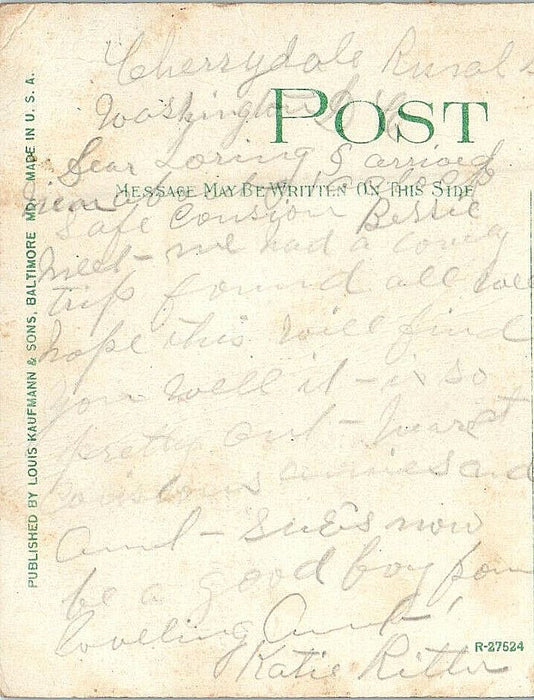 Cherrydale Rural
Washington D C
POST
Dear Loring I arrived
MESSAGE MAY BE WRITTEN ON THIS SIDE
safe Bessie
meet me had a lovly
trip found all well
hope this will find
you well it is so
pretty out
and
Aunt Sues now
be a good boy from
loveling Aunt
Katie Ritter
R-27524
PUBLISHED BY LOUIS KAUFMANN & SONS, BALTIMORE MD. MADE IN U. S. A.